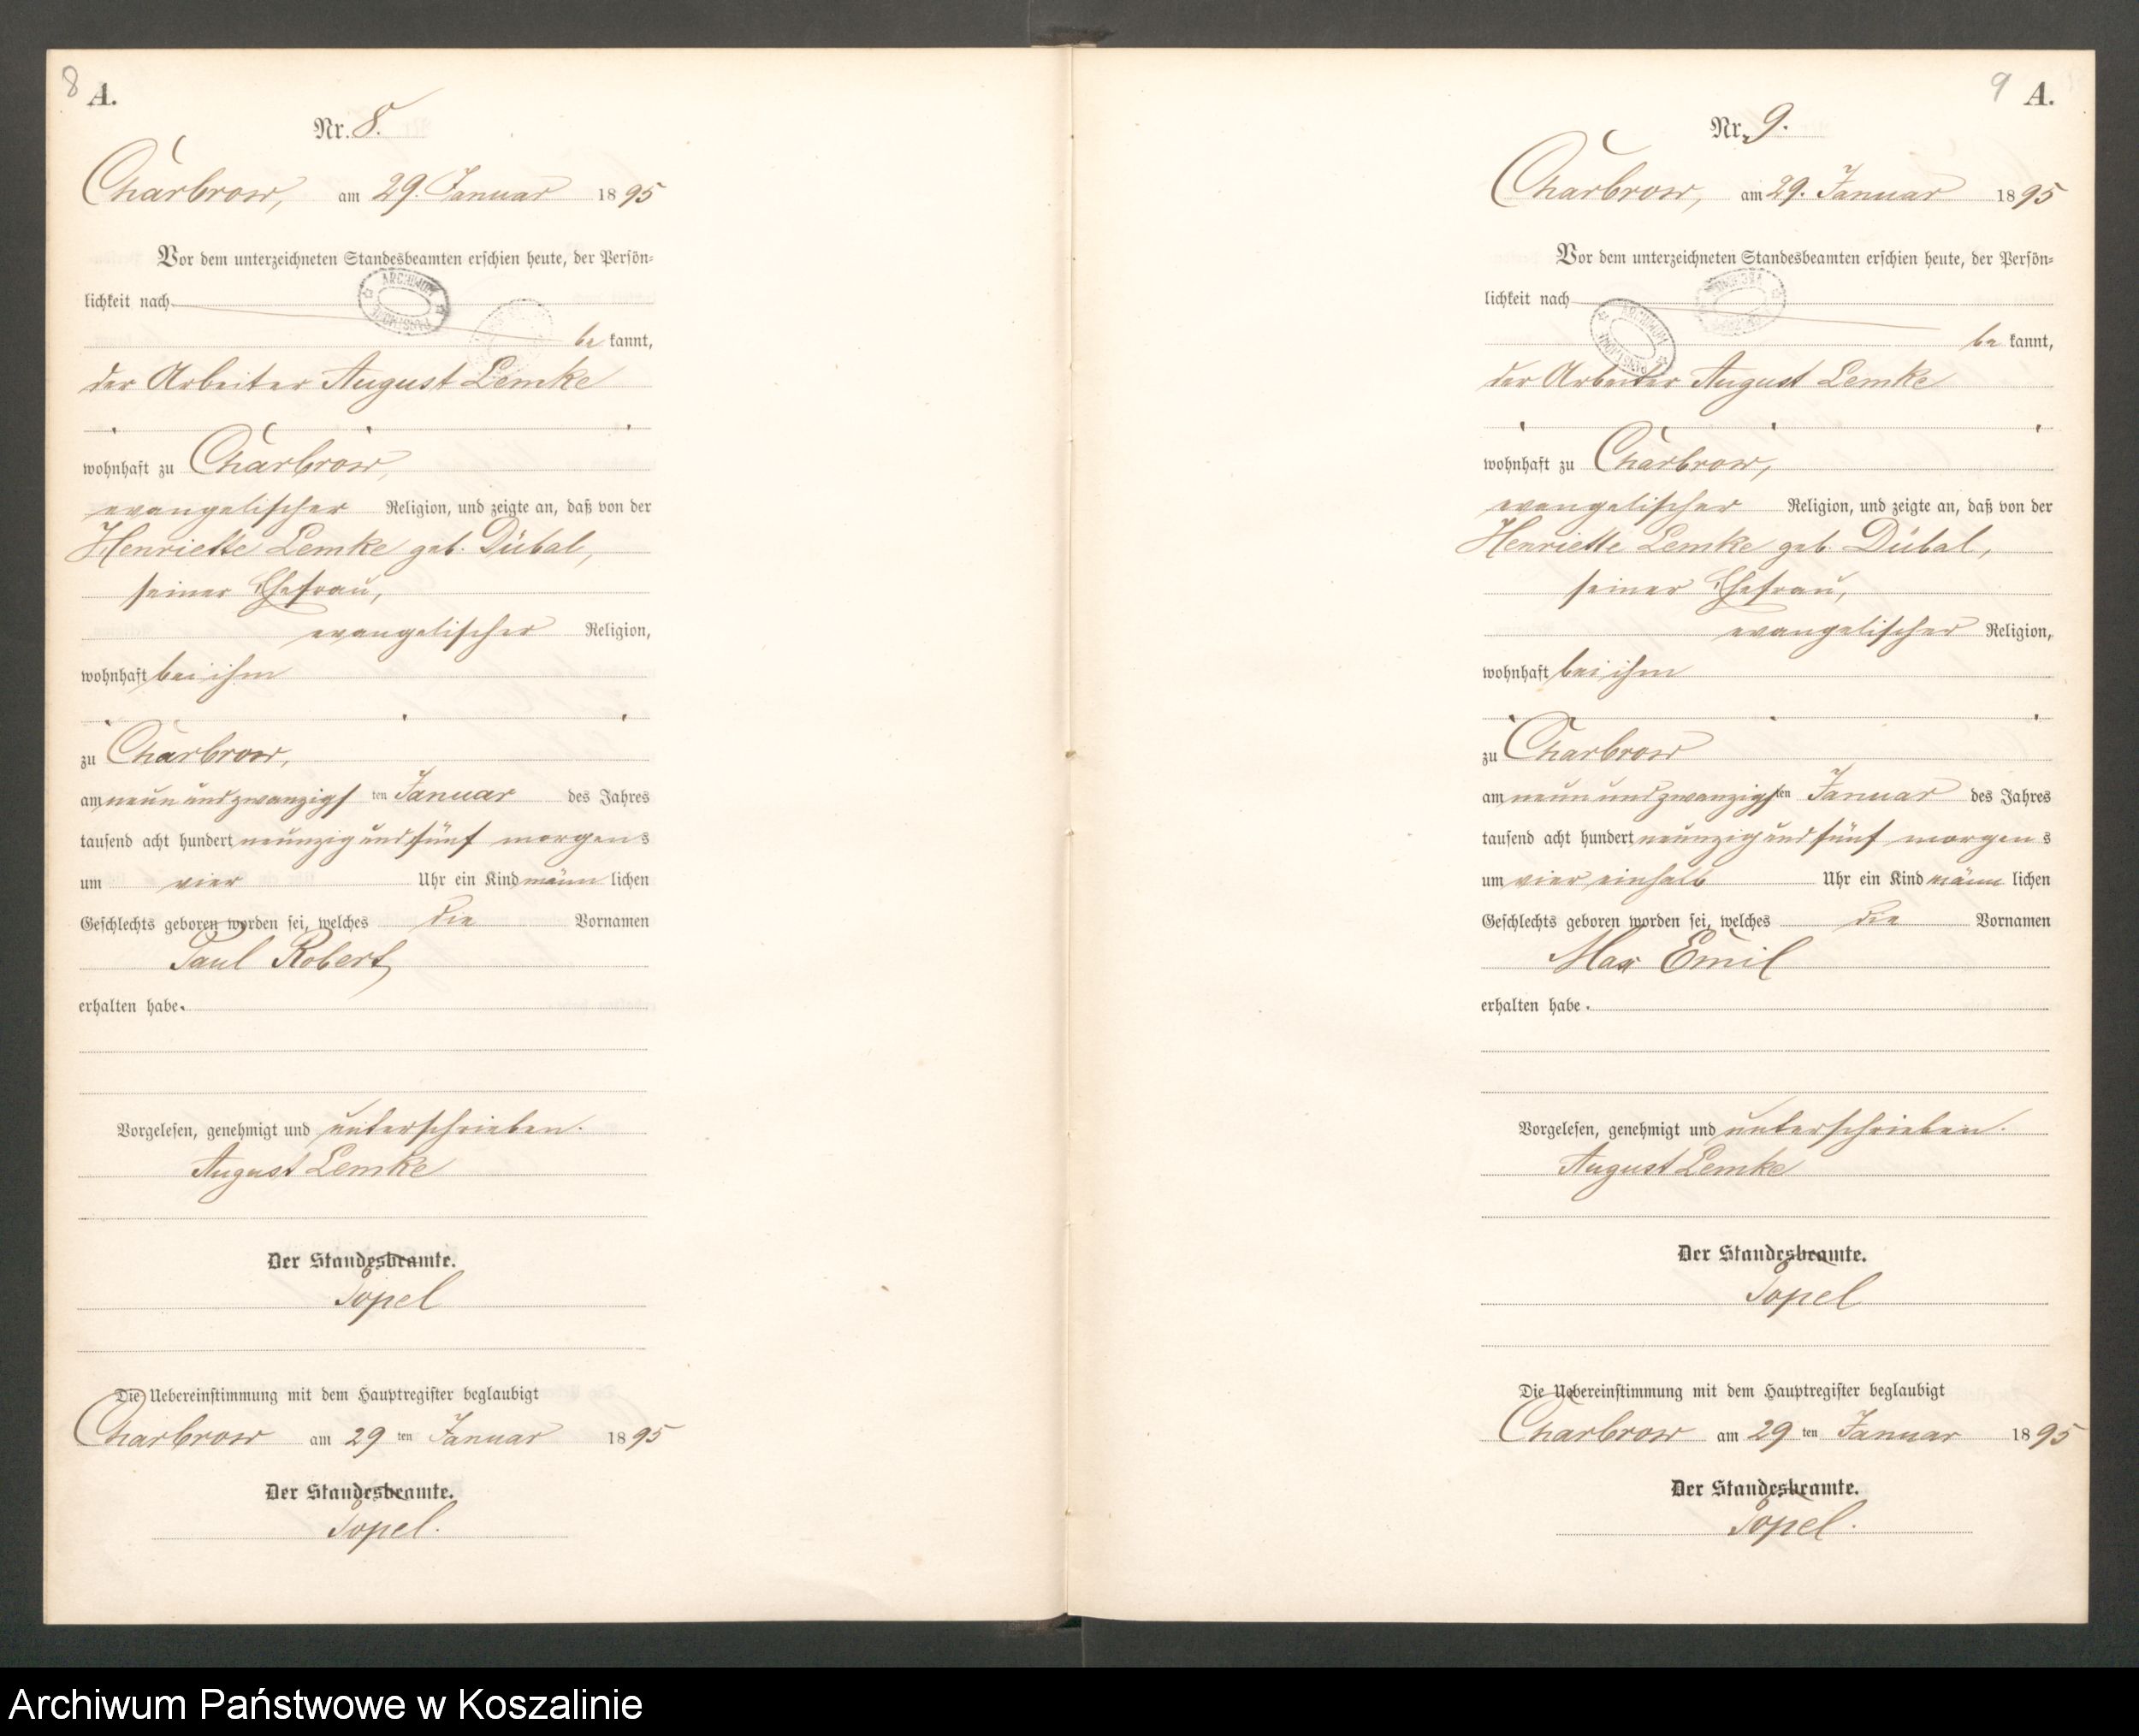 8
A.
Nr. 8.
Charbrow, am 29. Januar 1895
Vor dem unterzeichneten Standesbeamten erschien heute, der Persön-
lichkeit nach
be kannt,
der Arbeiter August Lemke
wohnhaft zu Charbrow,
evangelischer Religion, und zeigte an, daß von der
Henriette Lemke geb. Dübal,
seiner Ehefrau,
evangelischer Religion,
wohnhaft bei ihm
zu Charbrow,
am neun und zwanzigs ten Januar des Jahres
tausend acht hundert neunzig und fünf morgens
um vier Uhr ein Kind männ lichen
Geschlechts geboren worden sei, welches die Vornamen
Paul Robert
erhalten habe.
Vorgelesen, genehmigt und unterschrieben.
August Lemke
Der Standesbeamte.
Topel
Die Uebereinstimmung mit dem Hauptregister beglaubigt
Charbrow am 29 ten Januar 1895
Der Standesbeamte.
Topel.
9
A.
Nr. 9.
Charbrow, am 29. Januar 1895
Vor dem unterzeichneten Standesbeamten erschien heute, der Persön-
lichkeit nach
be kannt,
der Arbeiter August Lemke
wohnhaft zu Charbrow,
evangelischer Religion, und zeigte an, daß von der
Henriette Lemke geb. Dübal,
seiner Ehefrau,
evangelischer Religion,
wohnhaft bei ihm
zu Charbrow
am neun und zwanzigs ten Januar des Jahres
tausend acht hundert neunzig und fünf morgens
um vier einhalb Uhr ein Kind männ lichen
Geschlechts geboren worden sei, welches die Vornamen
Max Emil
erhalten habe.
Vorgelesen, genehmigt und unterschrieben.
August Lemke
Der Standesbeamte.
Topel
Die Uebereinstimmung mit dem Hauptregister beglaubigt
Charbrow am 29 ten Januar 1895
Der Standesbeamte.
Topel.
Archiwum Państwowe w Koszalinie